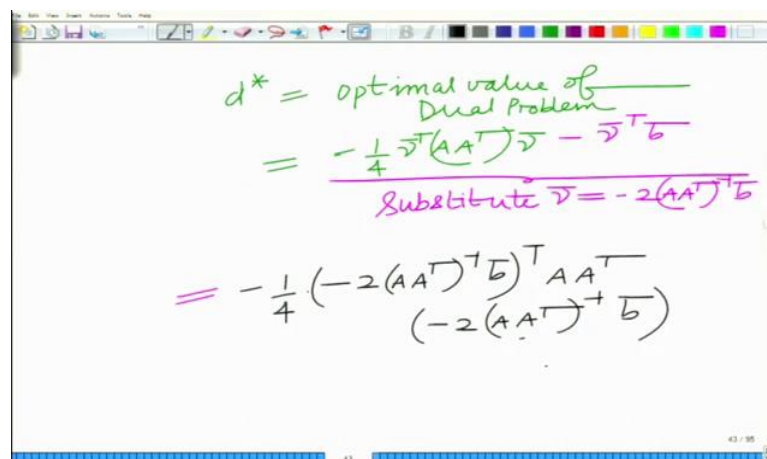 File Edit View Insert Actions Tools Help
B I
d* = optimal value of
Dual Problem
= -1/4 ν̄ᵀ(AAᵀ)ν̄ - ν̄ᵀb̄
Substitute ν̄ = -2(AAᵀ)⁻¹b̄
= -1/4 (-2(AAᵀ)⁻¹b̄)ᵀ AAᵀ
(-2(AAᵀ)⁻¹ b̄)
43 / 95
43